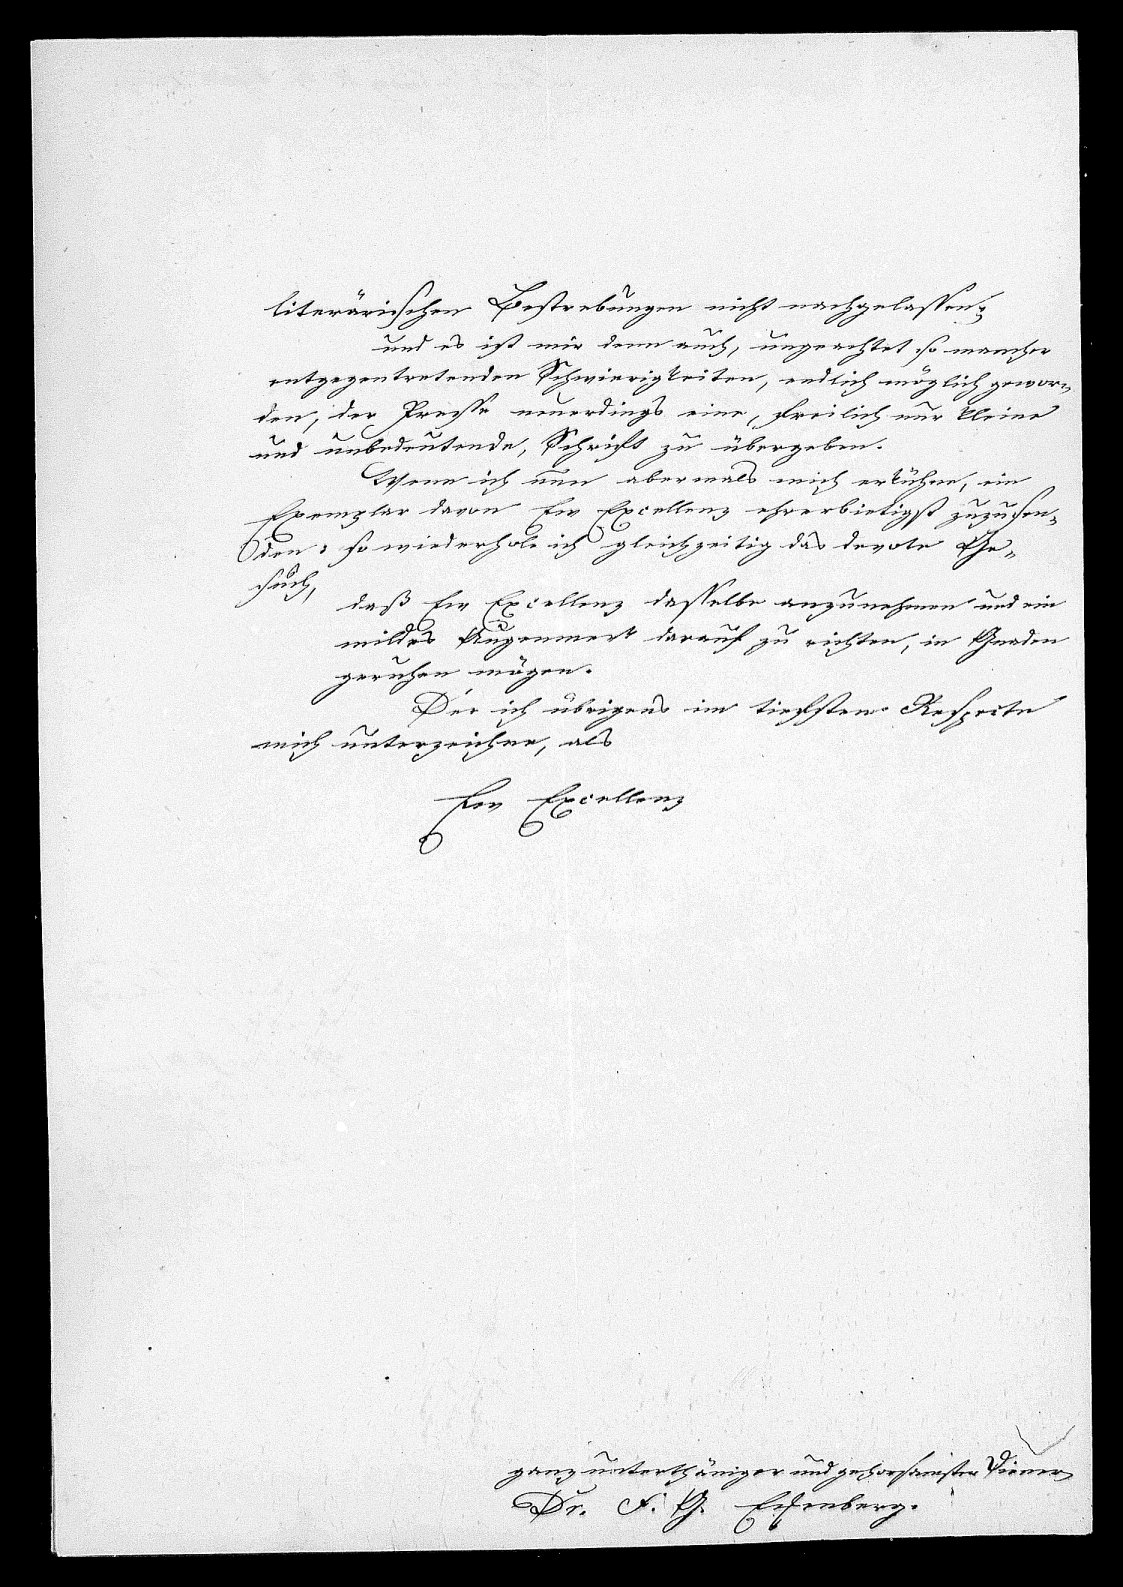 literärischen Bestrebungen nicht nachgelassen;
und es ist mir denn auch, ungeachtet so mancher
entgegentretenden Schwierigkeiten, endlich möglich gewor-
den, der Presse neuerdings eine, freilich nur kleine
und unbedeutende, Schrift zu übergeben.
Wenn ich nun abermals mich erkühne, ein
Exemplar davon Ew Excellenz ehrerbietigst zuzusen-
den: so wiederhole ich gleichzeitig das devote Ge-
such,
daß Ew Excellenz dasselbe anzunehmen und ein
mildes Augenmerk darauf zu richten, in Gnaden
geruhen mögen.
Der ich übrigens im tiefsten Respecte
mich unterzeichne, als
Ew Excellenz
ganz unterthäniger und gehorsamster Diener
Dr. F. G. Eisenberg.